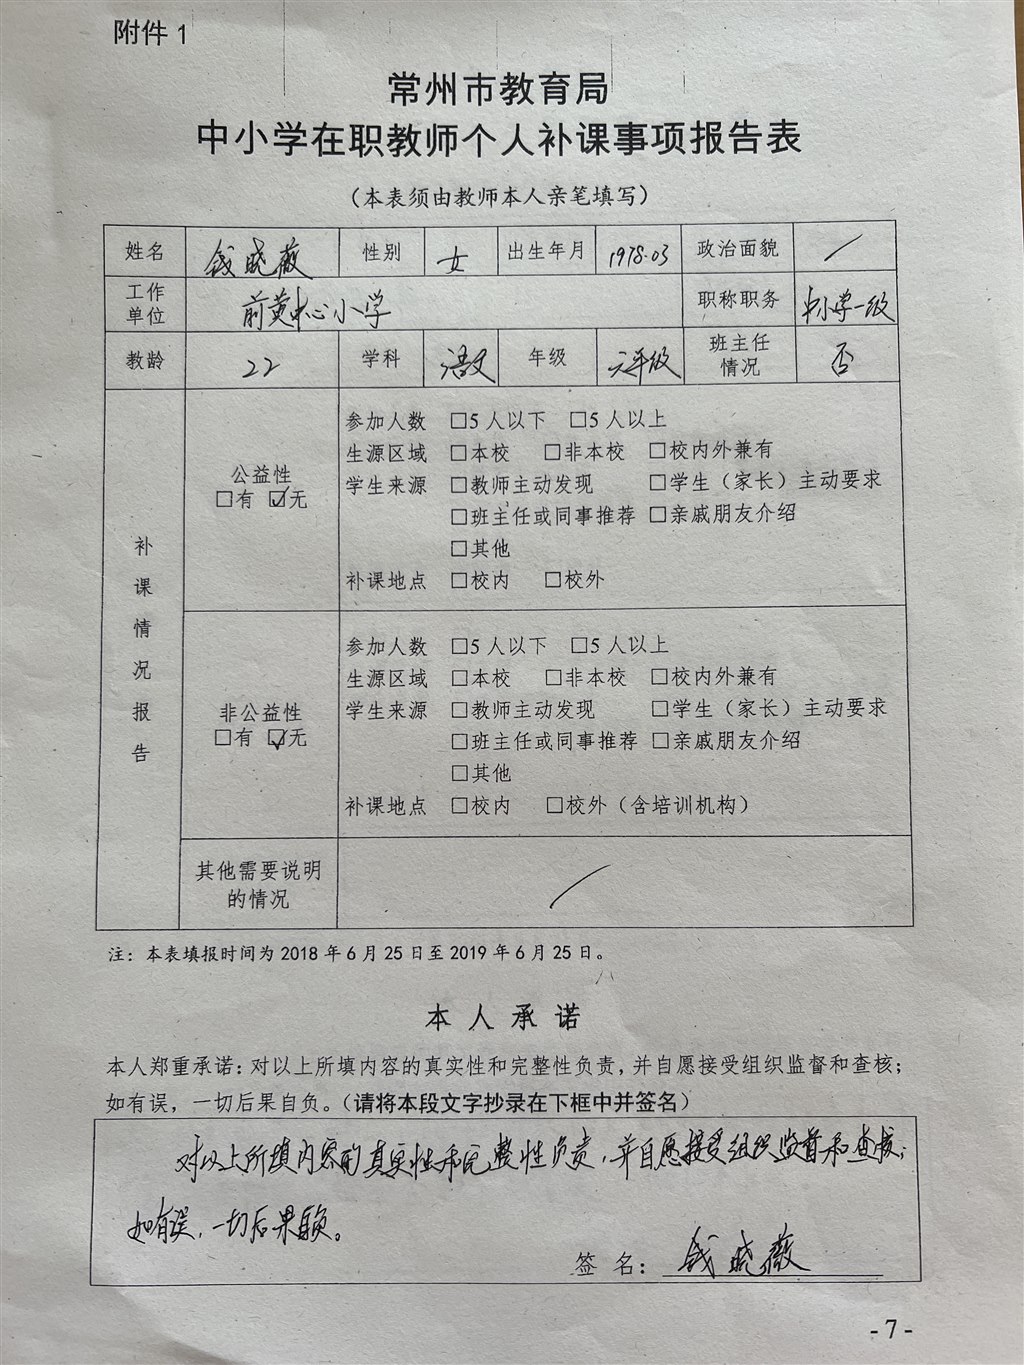 附件 1
常州市教育局
中小学在职教师个人补课事项报告表
（本表须由教师本人亲笔填写）
姓名 钱晓薇 性别 女 出生年月 1978.03 政治面貌 /
工作单位 前黄中心小学 职称职务 中小学一级
教龄 22 学科 语文 年级 六年级 班主任情况 否
补课情况报告
公益性
□有 ☑无
参加人数 □5 人以下 □5 人以上
生源区域 □本校 □非本校 □校内外兼有
学生来源 □教师主动发现 □学生（家长）主动要求
□班主任或同事推荐 □亲戚朋友介绍
□其他
补课地点 □校内 □校外
非公益性
□有 ☑无
参加人数 □5 人以下 □5 人以上
生源区域 □本校 □非本校 □校内外兼有
学生来源 □教师主动发现 □学生（家长）主动要求
□班主任或同事推荐 □亲戚朋友介绍
□其他
补课地点 □校内 □校外（含培训机构）
其他需要说明
的情况 /
注：本表填报时间为 2018 年 6 月 25 日至 2019 年 6 月 25 日。
本 人 承 诺
本人郑重承诺：对以上所填内容的真实性和完整性负责，并自愿接受组织监督和查核；
如有误，一切后果自负。（请将本段文字抄录在下框中并签名）
对以上所填内容的真实性和完整性负责，并自愿接受组织监督和查核；
如有误，一切后果自负。
签 名： 钱晓薇
- 7 -